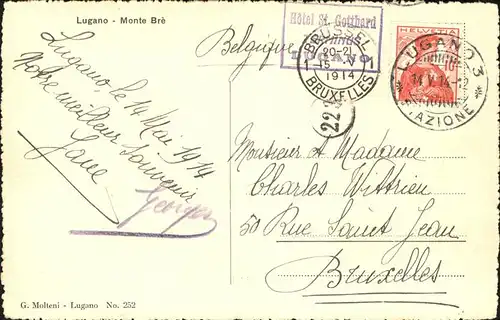 Lugano - Monte Brè
Belgique
Hôtel St. Gotthard
LUGANO
BRUSSEL
20-21
15 V
1914
BRUXELLES
HELVETIA
10
LUGANO 3
14 V 14 - 2
STAZIONE
22
Lugano, le 14 Mai 1914
Votre meilleur souvenir
Jane
Georges
Monsieur et Madame
Charles Wittrien
50 Rue Saint Jean
Bruxelles
G. Molteni - Lugano No. 252